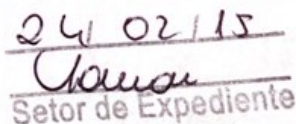 24/02/15
Setor de Expediente